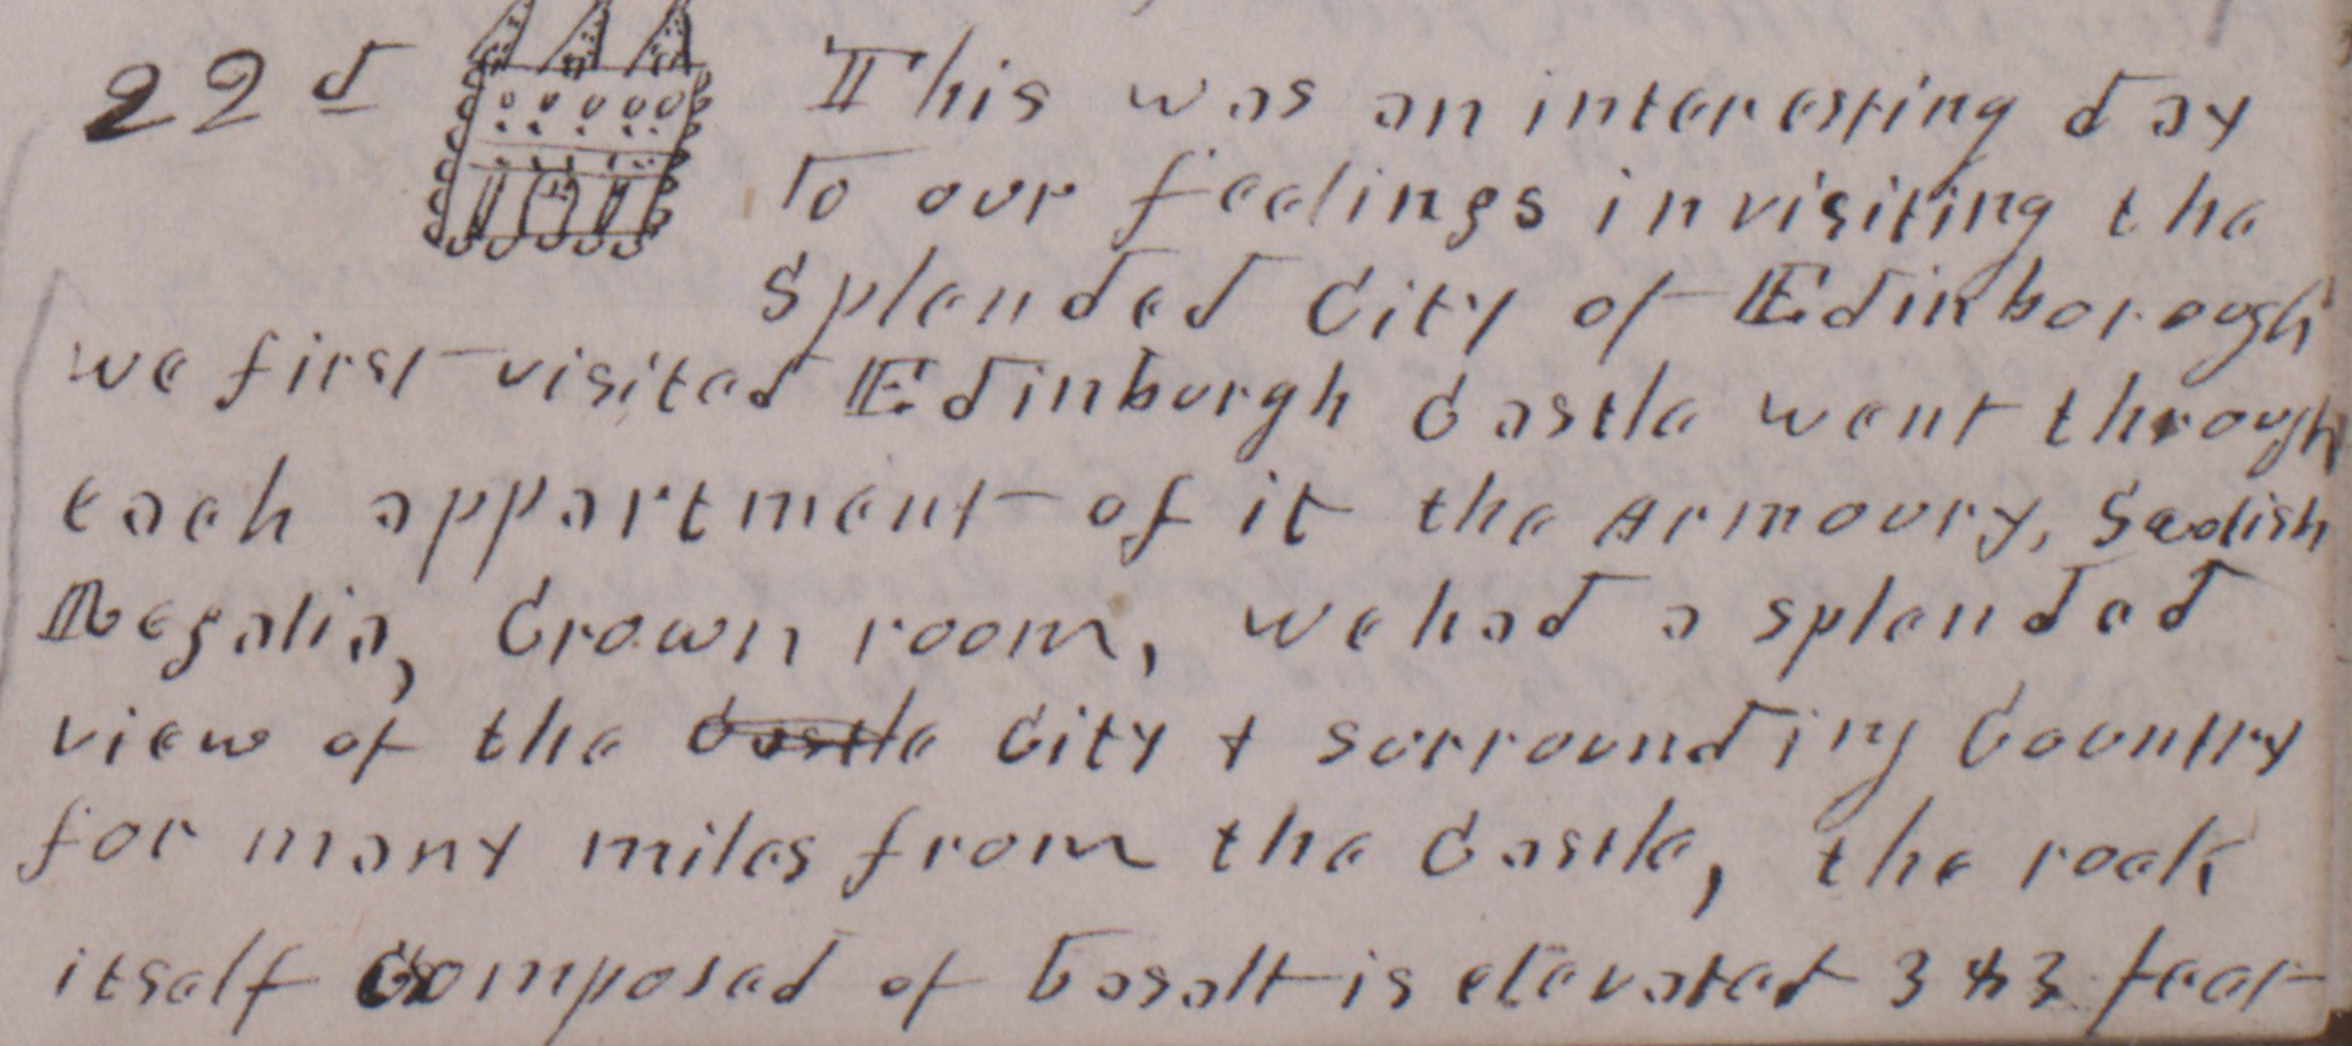 22d This was an interesting day
to our feelings in visiting the
Splended City of Edinborough
we first visited Edinburgh Castle went through
each appartment of it the Armoury,
Regalia, Crown room, we had a splended
view of the Castle City + surrounding Country
for many miles from the Castle, the rock
itself Composed of basalt is elevated 343 feet